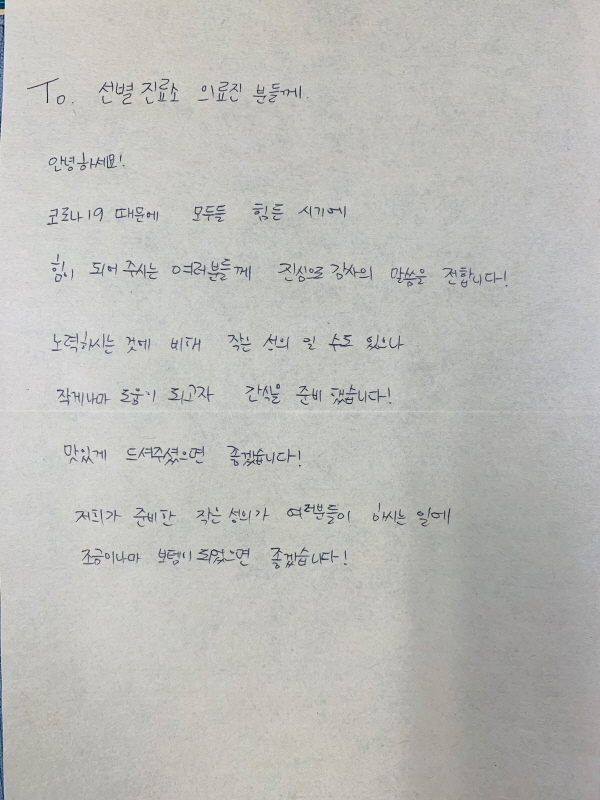 To. 선별 진료소 의료진 분들께.
안녕하세요!
코로나19 때문에 모두들 힘든 시기에
힘이 되어 주시는 여러분들께 진심으로 감사의 말씀을 전합니다!
노력하시는 것에 비해 작은 선의 일 수도 있으나
작게나마 도움이 되고자 간식을 준비 했습니다!
맛있게 드셔주셨으면 좋겠습니다!
저희가 준비한 작은 성의가 여러분들이 하시는 일에
조금이나마 보탬이 되었으면 좋겠습니다!